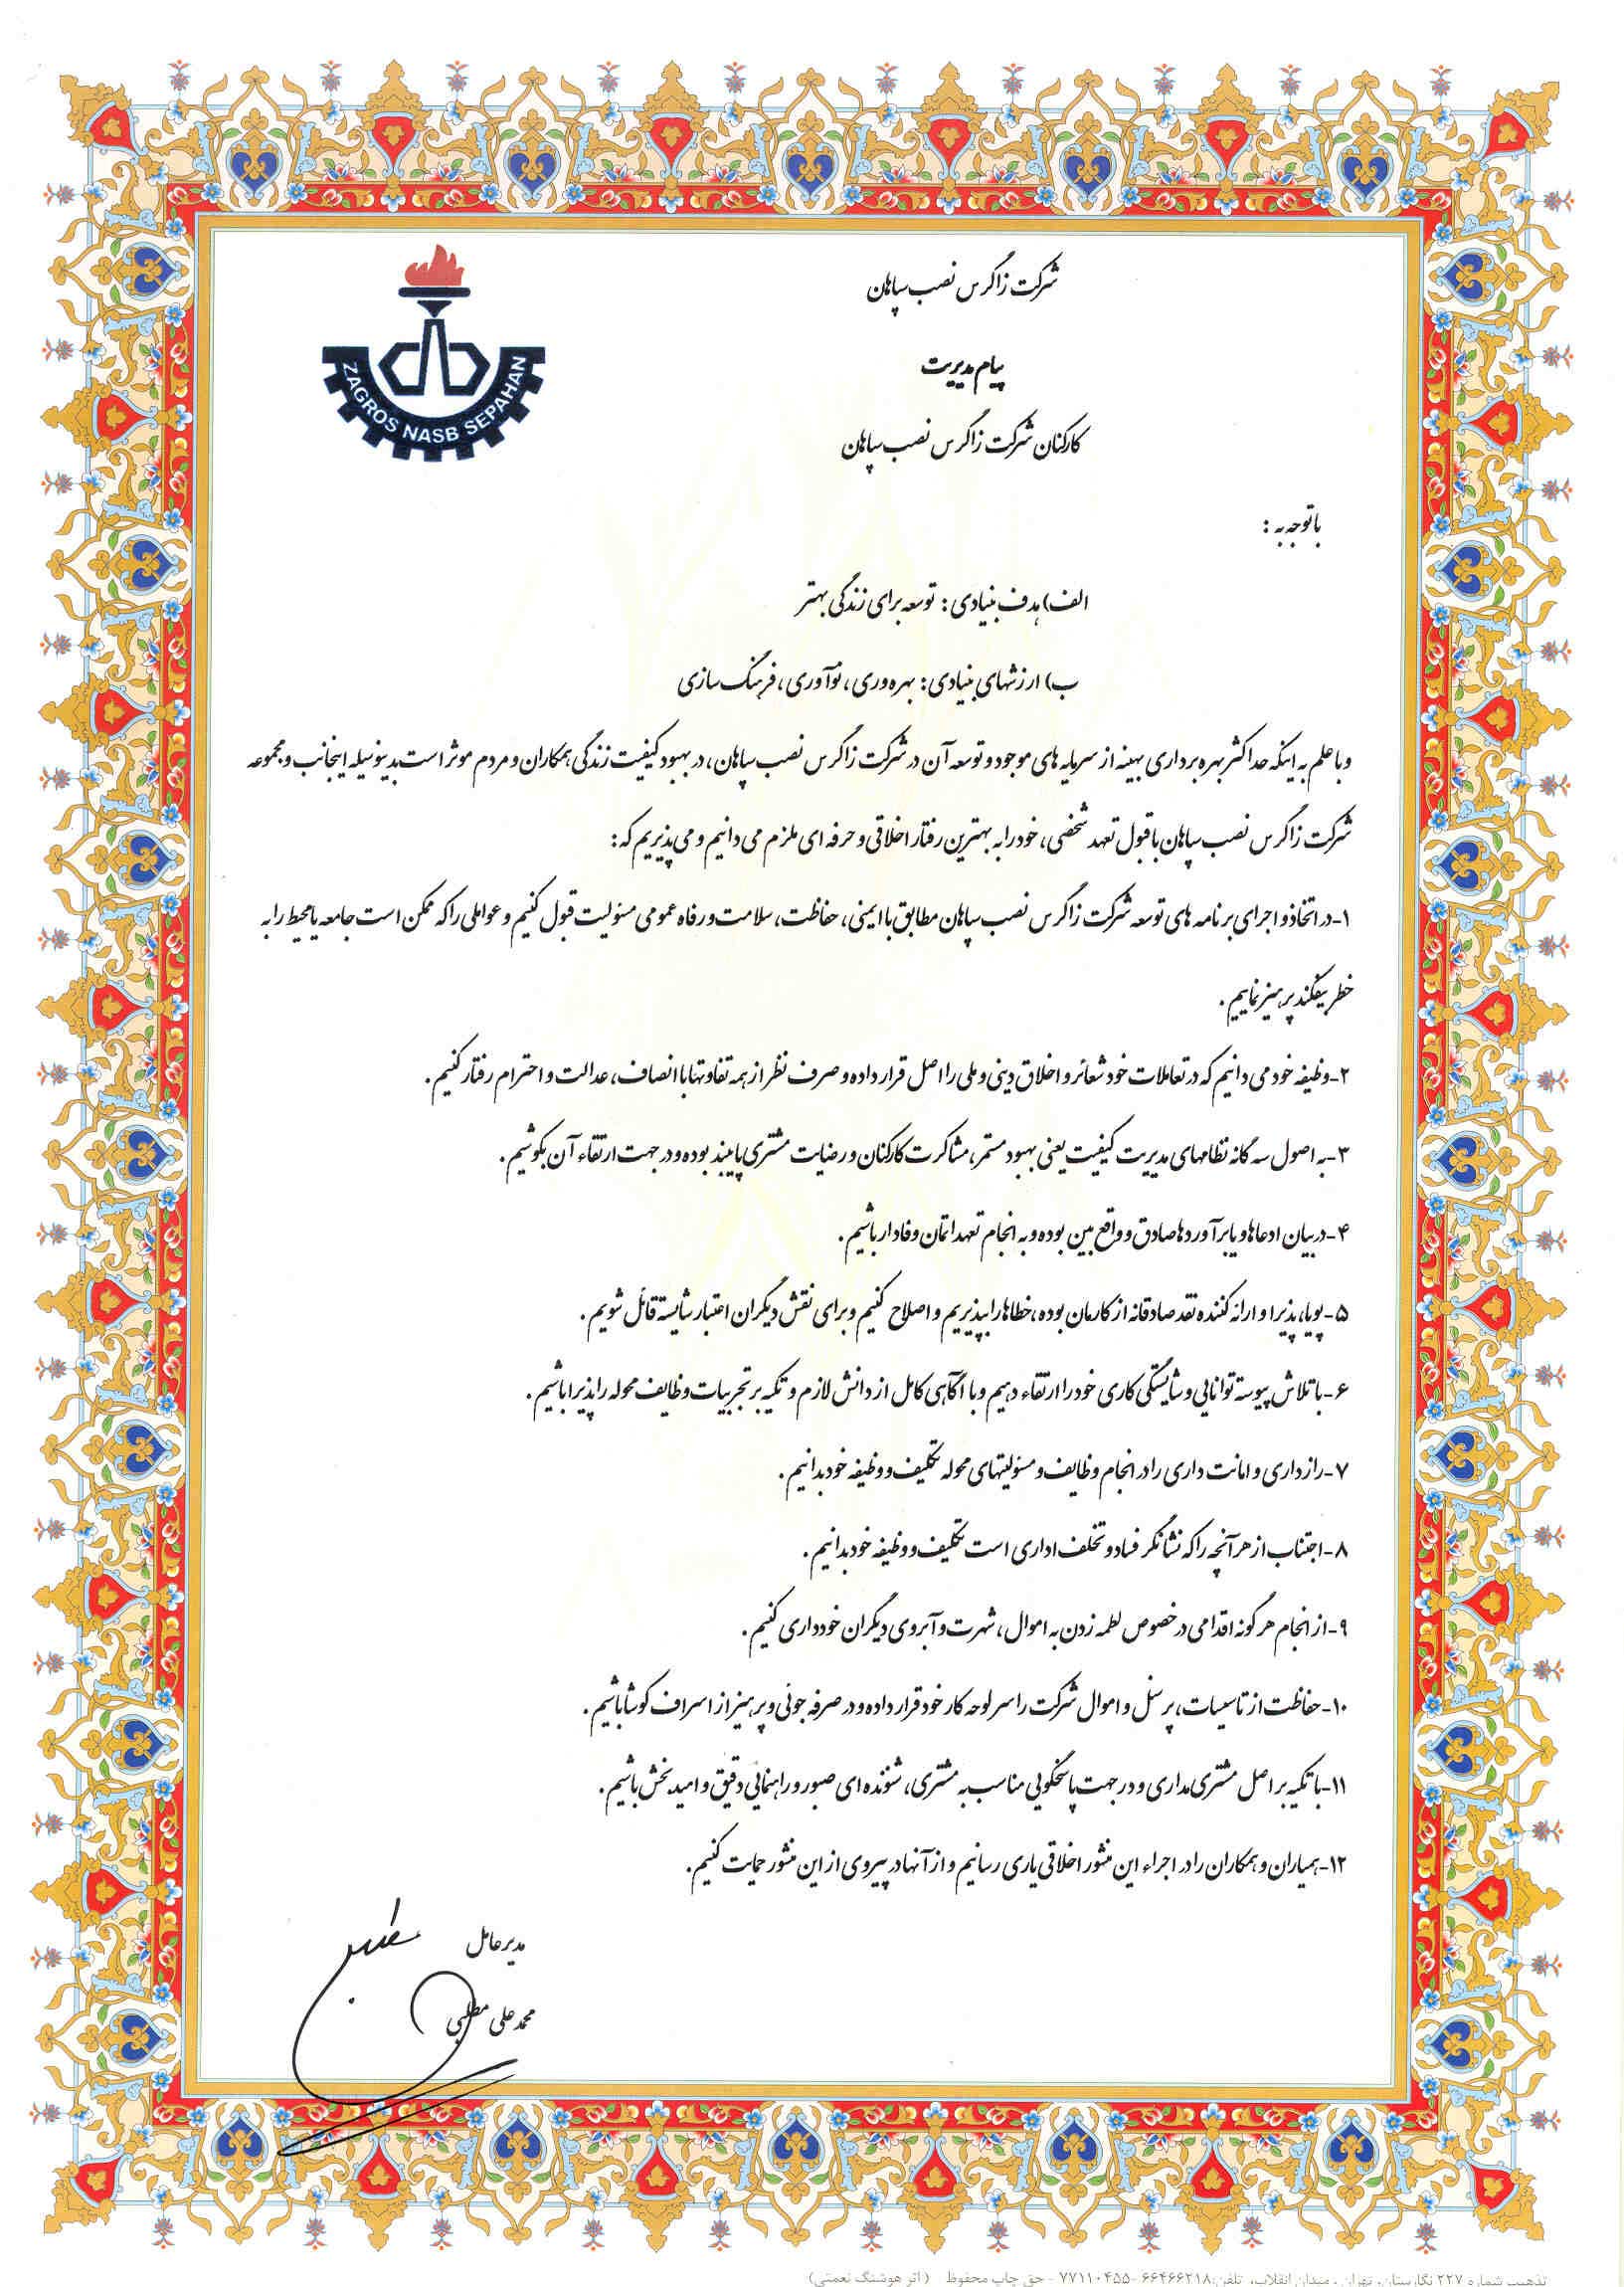 شرکت زاگرس نصب سپاهان
ZAGROS NASB SEPAHAN
پیام مدیریت
کارکنان شرکت زاگرس نصب سپاهان
با توجه به :
الف) هدف بنیادی : توسعه برای زندگی بهتر
ب) ارزشهای بنیادی : بهره وری ، نوآوری ، فرهنگ سازی
و با علم به اینکه حداکثر بهره برداری بهینه از سرمایه های موجود و توسعه آن در شرکت زاگرس نصب سپاهان ، در بهبود کیفیت زندگی همکاران و مردم موثر است بدینوسیله اینجانب و مجموعه
شرکت زاگرس نصب سپاهان با قبول تعهد شخصی ، خود را به بهترین رفتار اخلاقی و حرفه ای ملزم می دانیم و می پذیریم که :
۱- در اتخاذ و اجرای برنامه های توسعه شرکت زاگرس نصب سپاهان مطابق با ایمنی ، حفاظت ، سلامت و رفاه عمومی مسئولیت قبول کنیم و عواملی را که ممکن است جامعه یا محیط را به
خطر بیفکند پرهیز نماییم .
۲- وظیفه خود می دانیم که در تعاملات خود شعائر و اخلاق دینی و ملی را اصل قرار داده و صرف نظر از همه تفاوتها با انصاف ، عدالت و احترام رفتار کنیم .
۳- به اصول سه گانه نظامهای مدیریت کیفیت یعنی بهبود مستمر ، مشاکرت کارکنان و رضایت مشتری پایبند بوده و در جهت ارتقاء آن بکوشیم .
۴- در بیان ادعاها و یا برآوردها صادق و واقع بین بوده و به انجام تعهداتمان وفادار باشیم .
۵- پویا ، پذیرا و ارائه کننده نقد صادقانه از کارمان بوده ، خطاها را بپذیریم و اصلاح کنیم و برای نقش دیگران اعتبار شایسته قائل شویم .
۶- با تلاش پیوسته توانایی و شایستگی کاری خود را ارتقاء دهیم و با آگاهی کامل از دانش لازم و تکیه بر تجربیات وظایف محوله را پذیرا باشیم .
۷- رازداری و امانت داری را در انجام وظایف و مسئولیتهای محوله تکلیف و وظیفه خود بدانیم .
۸- اجتناب از هر آنچه را که نشانگر فساد و تخلف اداری است تکلیف و وظیفه خود بدانیم .
۹- از انجام هر گونه اقدامی در خصوص لطمه زدن به اموال ، شهرت و آبروی دیگران خودداری کنیم .
۱۰- حفاظت از تاسیسات ، پرسنل و اموال شرکت را سرلوحه کار خود قرار داده و در صرفه جوئی و پرهیز از اسراف کوشا باشیم .
۱۱- با تکیه بر اصل مشتری مداری و در جهت پاسخگویی مناسب به مشتری ، شنونده ای صبور و راهنمائی دقیق و امیدبخش باشیم .
۱۲- همیاران و همکاران را در اجراء این منشور اخلاقی یاری رسانیم و از آنها در پیروی از این منشور حمایت کنیم .
مدیر عامل
محمد علی مطلبی
تذهیب شماره ۲۲۷ نگارستان، تهران ، میدان انقلاب، تلفن:۶۶۴۶۶۲۱۸-۷۷۱۱۰۴۵۵ - حق چاپ محفوظ (اثر هوشنگ نعمتی)